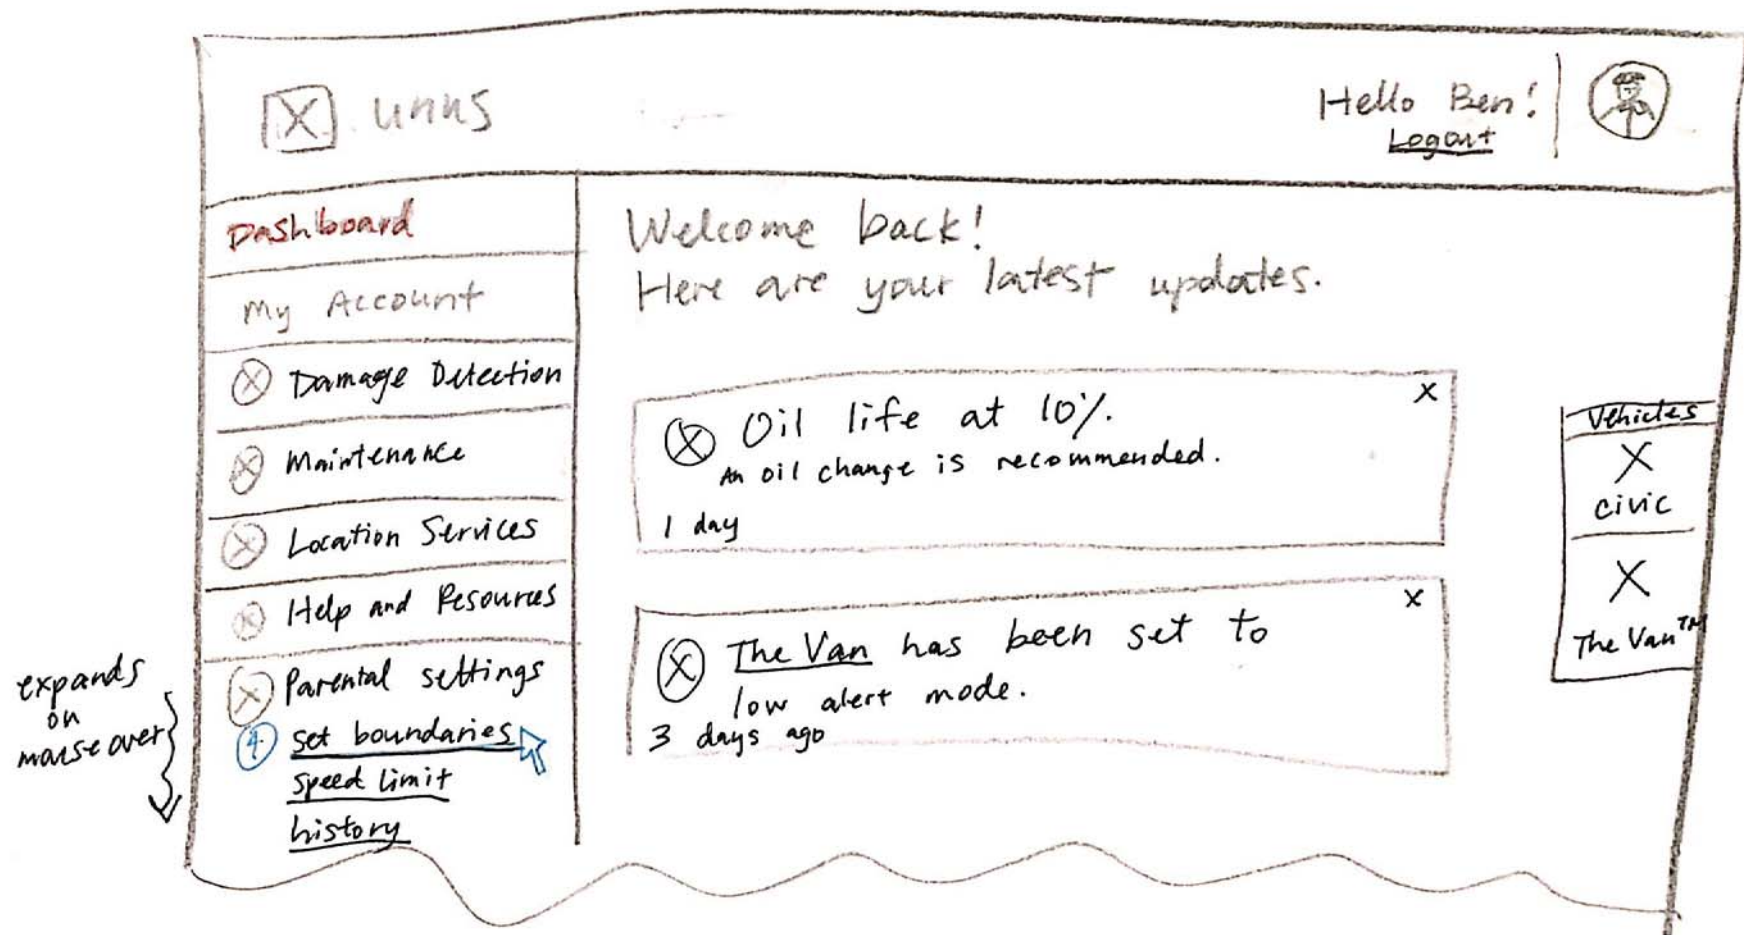 unus
Hello Ben!
Logout
Dashboard
My Account
Damage Detection
Maintenance
Location Services
Help and Resources
Parental settings
4.
set boundaries
speed limit
history
expands
on
mouse over
Welcome back!
Here are your latest updates.
X
Oil life at 10%.
An oil change is recommended.
1 day
X
The Van has been set to
low alert mode.
3 days ago
Vehicles
civic
The Van™